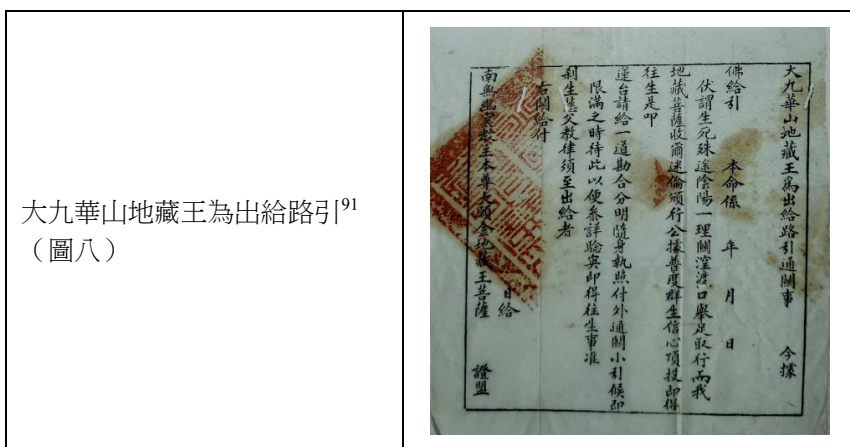 大九華山地藏王為出給路引91
（圖八）
大九華山地藏王爲出給路引通關事　今據
佛給引　本命係　年　月　日
伏謂生死殊途陰陽一理關津渡口舉足取行而我
地藏菩薩收爾迷倫頒行公據普度群生信心頂投即得
往生是叩
蓮台請給一道勘合分明隨身執照付外通關小引候即
限滿之時待此以便叅詳驗實即得往生事准
剎生慈父教律須至出給者
右關給付
日給
南無幽冥教主本尊大願金地藏王菩薩　證盟